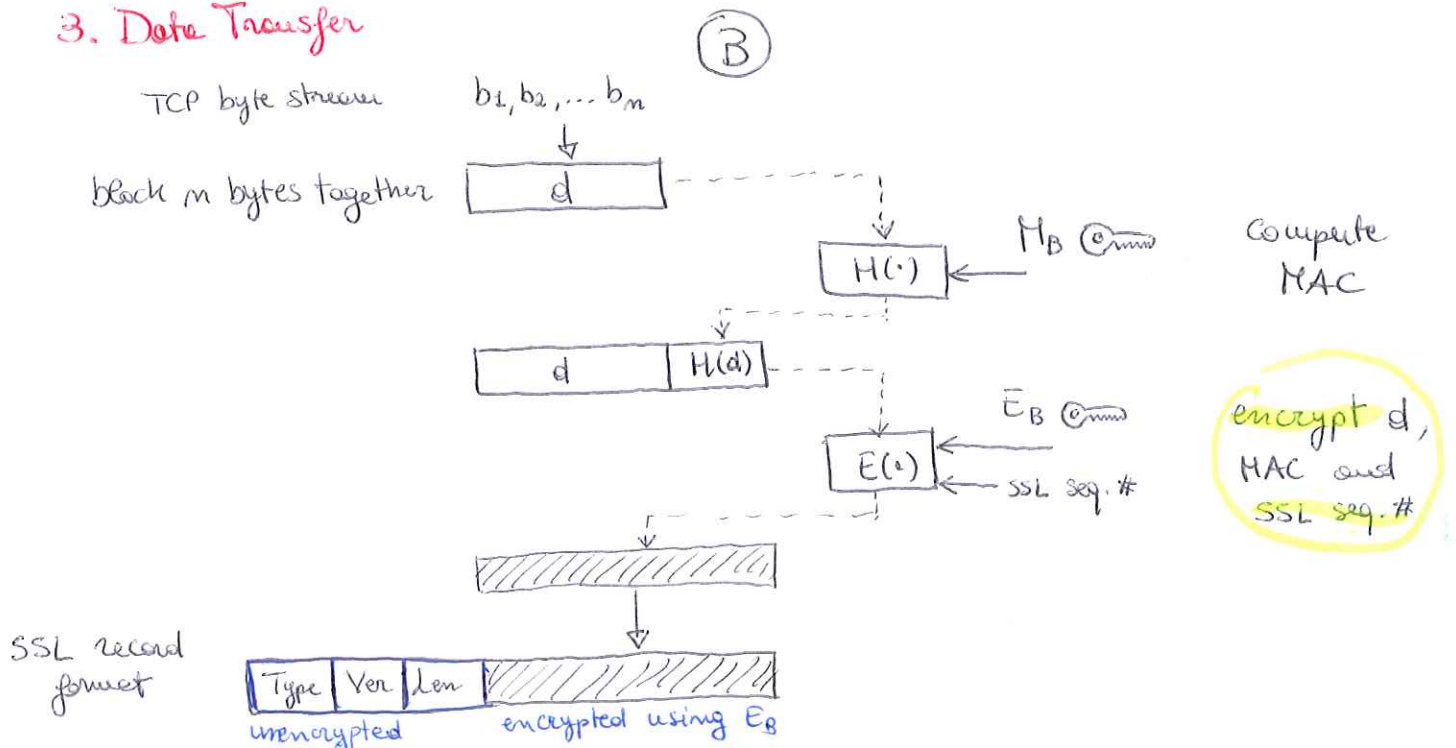 3. Data Transfer
B
TCP byte stream b1, b2, ... bn
block n bytes together d
H(·) MB compute
MAC
d H(d)
EB encrypt d,
E(·) SSL seq. # MAC and
SSL seq. #
SSL record
format
Type Ver Len
unencrypted encrypted using EB